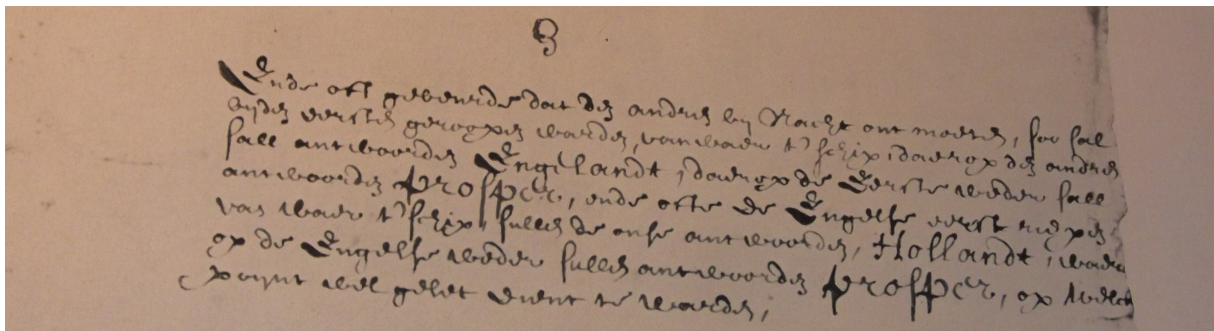 3
Ende oft gebeurde dat den andren by Nacht ont moeten, soo sal
byden eersten geroopen warden, vanwaer t'schip, daerop den andren
sall antwoorden Engelandt, daerop de Eerste weder sall
antwoorden prosper, ende ofte de Engelse eerst riepen
van waer t'schip, sullen de onse antwoorden, Hollandt, waer
op de Engelse weder sullen antwoorden prosper, op welck
poynt wel gelet dient te warden,